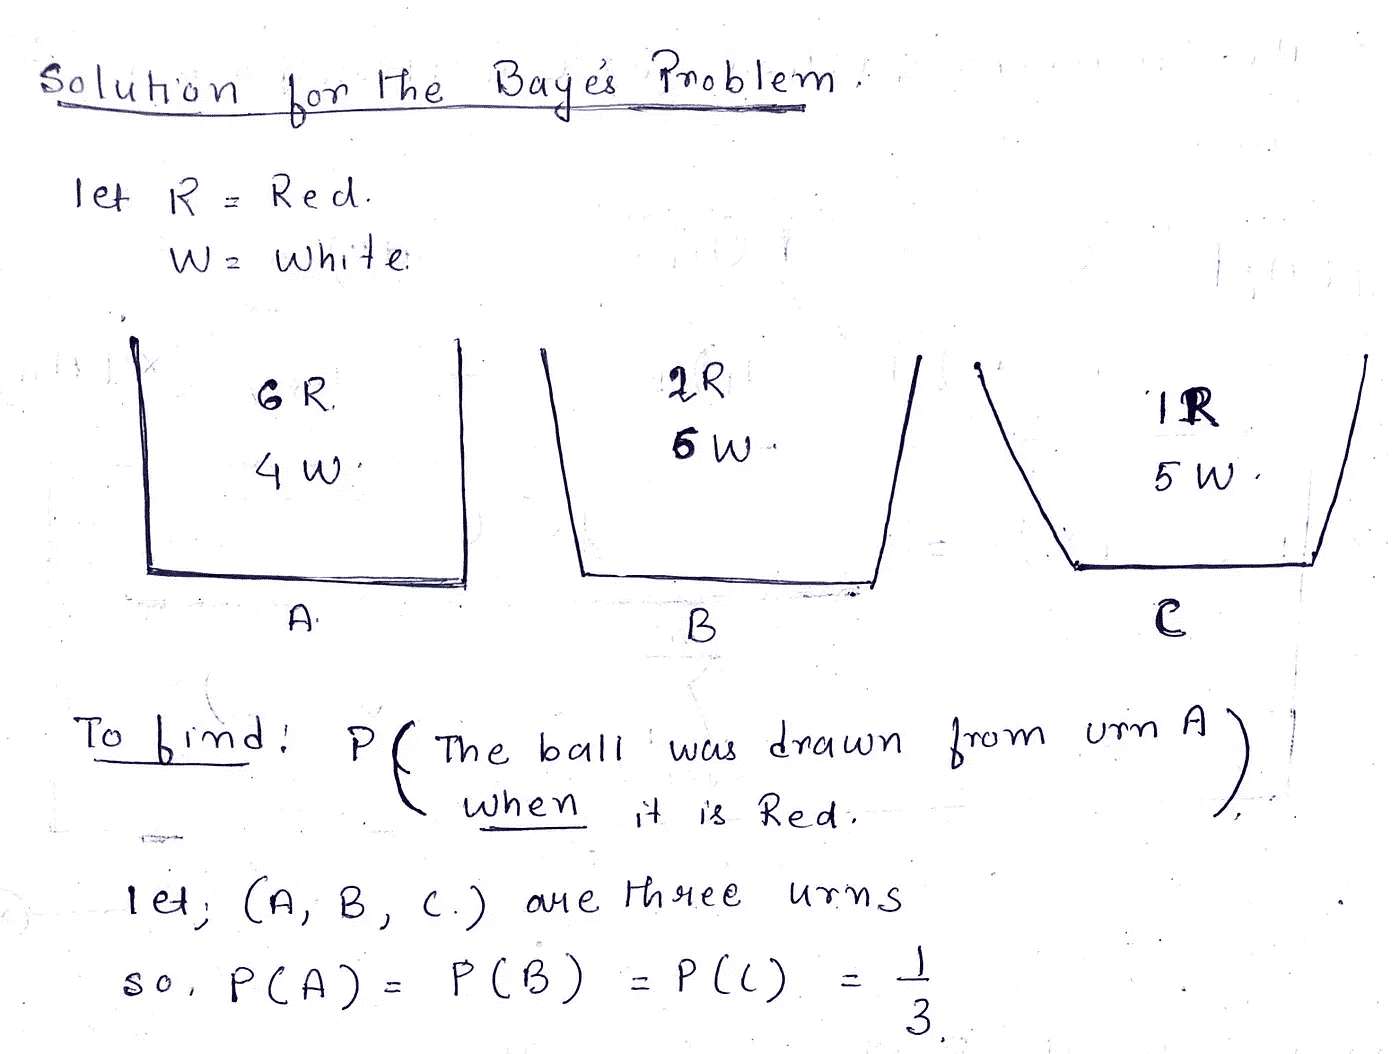 Solution for the Baye's Problem.
let R = Red.
W = White.
6 R. 2R 1R
4 W. 6 W. 5 W.
A. B C
To find: P ( The ball was drawn from urn A
when it is Red. ).
let; (A, B, C.) are three urns
so, P(A) = P(B) = P(C) = 1/3.